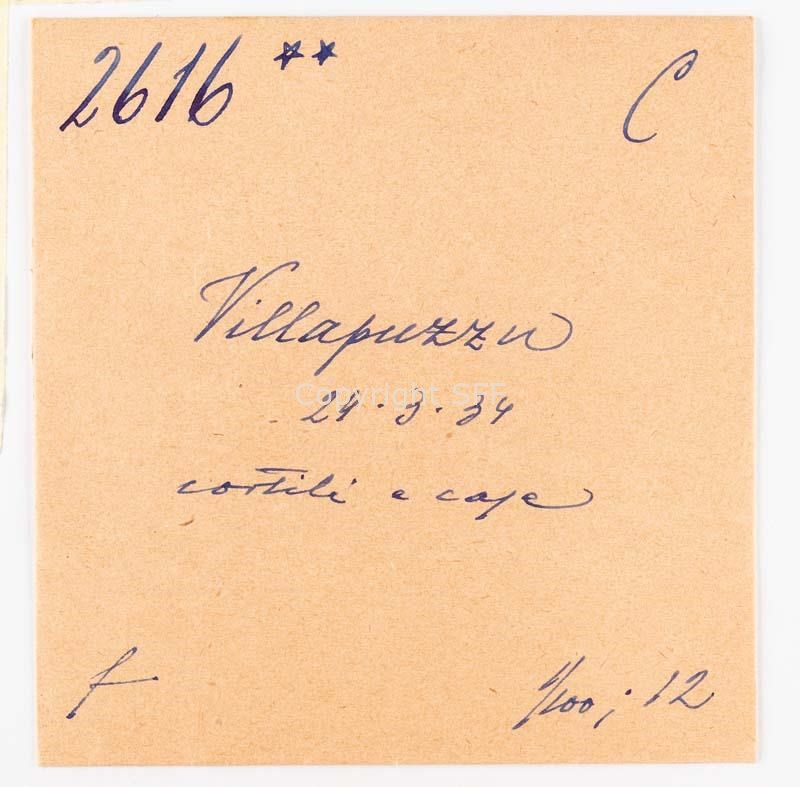 2616 **
C
Villapuzzu
Copyright SFE
24.3.34
cortili e case
f
1/100; 12